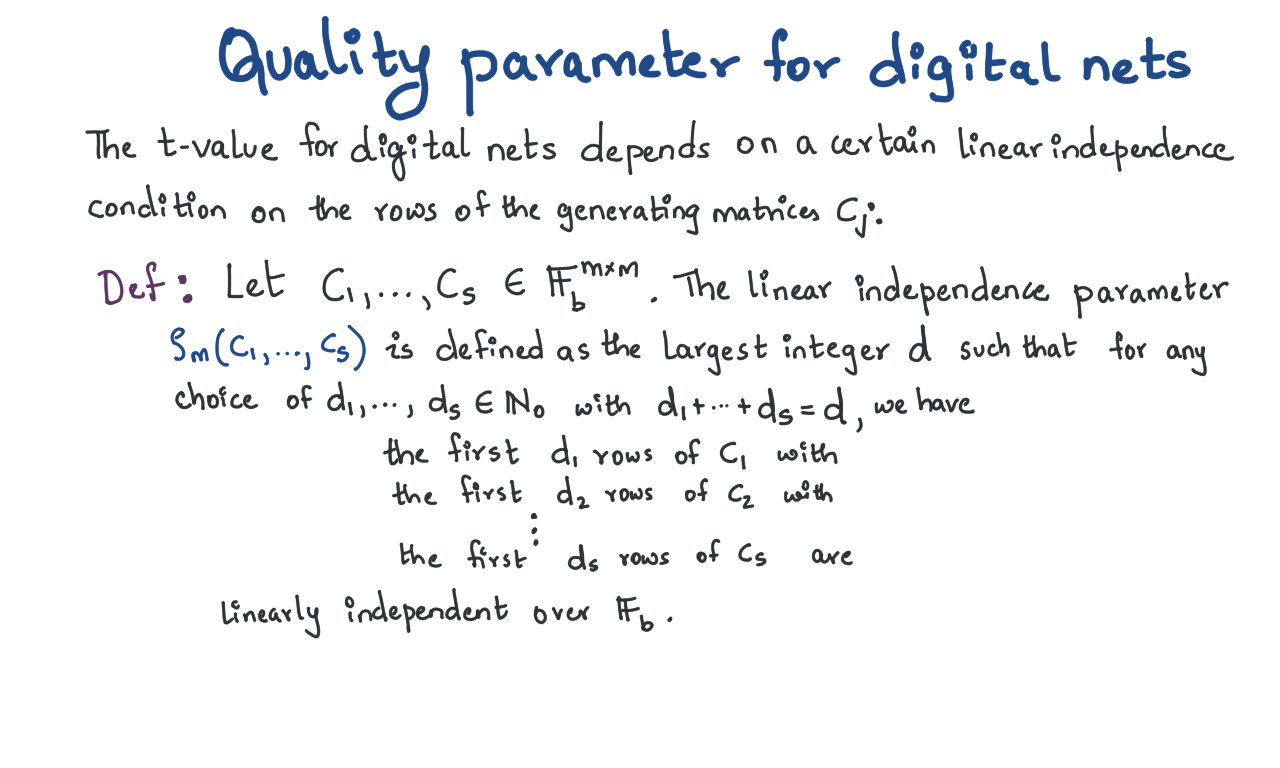 Quality parameter for digital nets
The t-value for digital nets depends on a certain linear independence
condition on the rows of the generating matrices Cj.
Def: Let C₁,...,Cs ∈ 𝔽_b^{m×m}. The linear independence parameter
ρm(C₁,...,Cs) is defined as the largest integer d such that for any
choice of d₁,..., ds ∈ ℕ₀ with d₁+...+ds = d, we have
the first d₁ rows of C₁ with
the first d₂ rows of C₂ with
⋮
the first ds rows of Cs are
linearly independent over 𝔽_b.